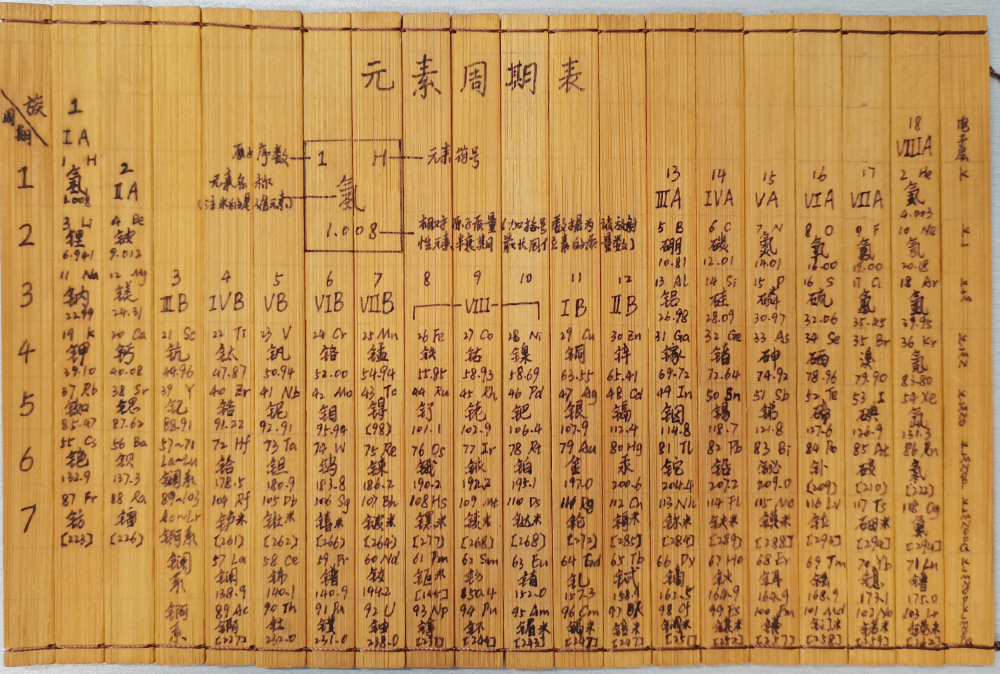 元素周期表
族
周期
1
IA
18
VIIIA
电子层
原子序数 1 H 元素符号
元素名称 氢
(注*的是人造元素)
1.008 相对原子质量(加括号数据为该放射
性元素半衰期最长同位素的质量数)
1
1 H
氢
1.008
2 He
氦
4.003
K
2
IIA
13
IIIA
14
IVA
15
VA
16
VIA
17
VIIA
2
3 Li 4 Be 5 B 6 C 7 N 8 O 9 F 10 Ne
锂 铍 硼 碳 氮 氧 氟 氖
6.941 9.012 10.81 12.01 14.01 16.00 19.00 20.18
3
11 Na 12 Mg 3 4 5 6 7 8 9 10 11 12 13 Al 14 Si 15 P 16 S 17 Cl 18 Ar
钠 镁 IIIB IVB VB VIB VIIB VIII IB IIB 铝 硅 磷 硫 氯 氩
22.99 24.31 26.98 28.09 30.97 32.06 35.45 39.95
4
19 K 20 Ca 21 Sc 22 Ti 23 V 24 Cr 25 Mn 26 Fe 27 Co 28 Ni 29 Cu 30 Zn 31 Ga 32 Ge 33 As 34 Se 35 Br 36 Kr
钾 钙 钪 钛 钒 铬 锰 铁 钴 镍 铜 锌 镓 锗 砷 硒 溴 氪
39.10 40.08 44.96 47.87 50.94 52.00 54.94 55.85 58.93 58.69 63.55 65.41 69.72 72.64 74.92 78.96 79.90 83.80
5
37 Rb 38 Sr 39 Y 40 Zr 41 Nb 42 Mo 43 Tc 44 Ru 45 Rh 46 Pd 47 Ag 48 Cd 49 In 50 Sn 51 Sb 52 Te 53 I 54 Xe
铷 锶 钇 锆 铌 钼 锝 钌 铑 钯 银 镉 铟 锡 锑 碲 碘 氙
85.47 87.62 88.91 91.22 92.91 95.94 (98) 101.1 102.9 106.4 107.9 112.4 114.8 118.7 121.8 127.6 126.9 131.3
6
55 Cs 56 Ba 57~71 72 Hf 73 Ta 74 W 75 Re 76 Os 77 Ir 78 Pt 79 Au 80 Hg 81 Tl 82 Pb 83 Bi 84 Po 85 At 86 Rn
铯 钡 La~Lu 铪 钽 钨 铼 锇 铱 铂 金 汞 铊 铅 铋 钋 砹 氡
132.9 137.3 镧系 178.5 180.9 183.8 186.2 190.2 192.2 195.1 197.0 200.6 204.4 207.2 209.0 [209] (210) [222]
7
87 Fr 88 Ra 89~103 104 Rf 105 Db 106 Sg 107 Bh 108 Hs 109 Mt 110 Ds 110 Rg 112 Cn 113 Nh 114 Fl 115 Mc 116 Lv 117 Ts 118 Og
钫 镭 Ac~Lr 𬬻* 𬭊* 𬭳* 𬭛* 𬭶* 鿏* 𫟼* 𬬭 鿔* 鿭* 𫓧* 镆* 𫟷 鿬* 鿫
[223] [226] 锕系 [261] [262] [266] [264] [277] [268] [268] [272] [285] [284] [289] [288] [293] [294] [294]
镧
系
57 La 58 Ce 59 Pr 60 Nd 61 Pm 62 Sm 63 Eu 64 Gd 65 Tb 66 Dy 67 Ho 68 Er 69 Tm 70 Yb 71 Lu
镧 铈 镨 钕 钷* 钐 铕 钆 铽 镝 钬 铒 铥 镱 镥
138.9 140.1 140.9 144.2 [144] 150.4 152.0 157.3 158.9 162.5 164.9 164.9 168.9 173.1 175.0
锕
系
89 Ac 90 Th 91 Pa 92 U 93 Np 94 Pu 95 Am 96 Cm 97 Bk 98 Cf 99 Es 100 Fm 101 Md 102 No 103 Lr
锕 钍 镤 铀 镎 钚 镅* 锔* 锫* 锎* 锿* 镄* 钔* 锘* 铹*
[227] 232.0 231.0 238.0 [237] [244] [243] [247] [247] [251] [252] [257] [258] [259] [262]